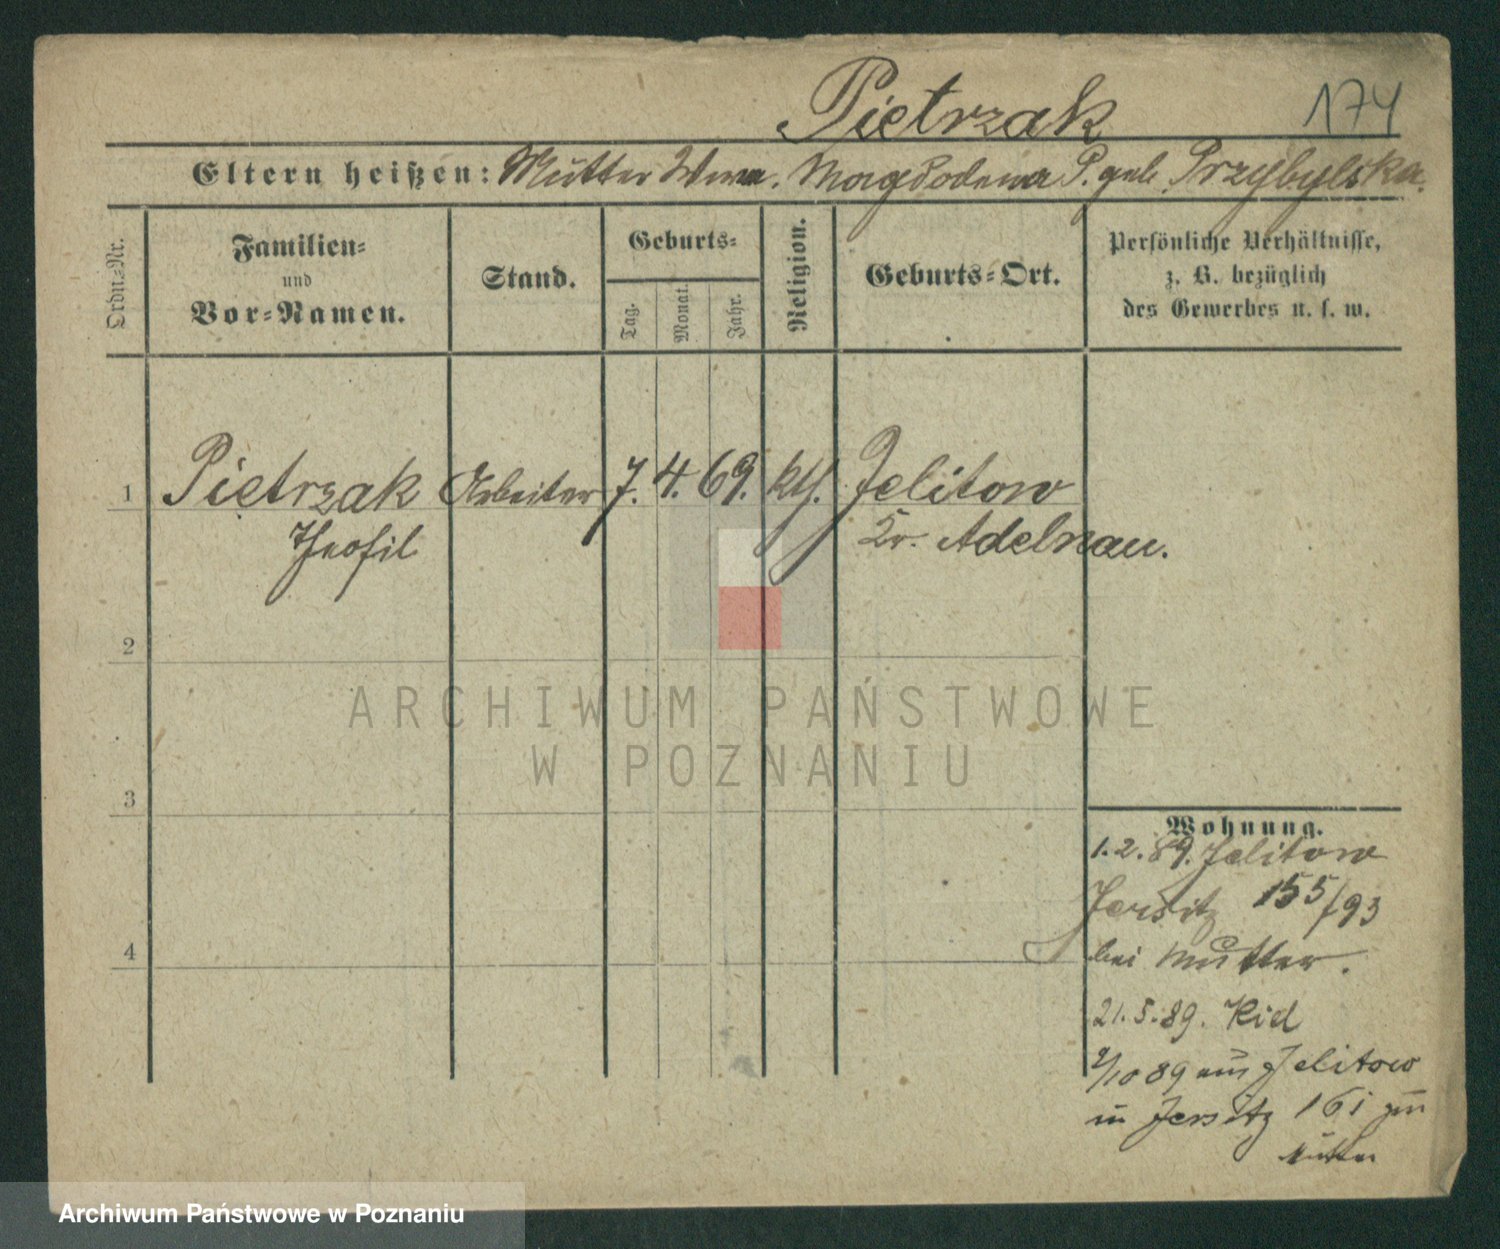 Pietrzak 174
Eltern heißen: Mutter Wwe. Magdalena P. geb. Przybylska.
Ordn.-Nr.
Familien-
und
Vor-Namen.
Stand.
Geburts-
Tag.
Monat.
Jahr.
Religion.
Geburts-Ort.
Persönliche Verhältnisse,
z. B. bezüglich
des Gewerbes u. s. w.
1 Pietrzak Arbeiter 7. 4. 69. kth. Jelitow
Theofil Kr. Adelnau.
2
3
4
Wohnung.
1.2.89. Jelitow
Jersitz 155/93
bei Mutter.
21.5.89.
/10 89 aus Jelitow
in Jersitz 161 zur
Mutter
ARCHIWUM PAŃSTWOWE
W POZNANIU
Archiwum Państwowe w Poznaniu